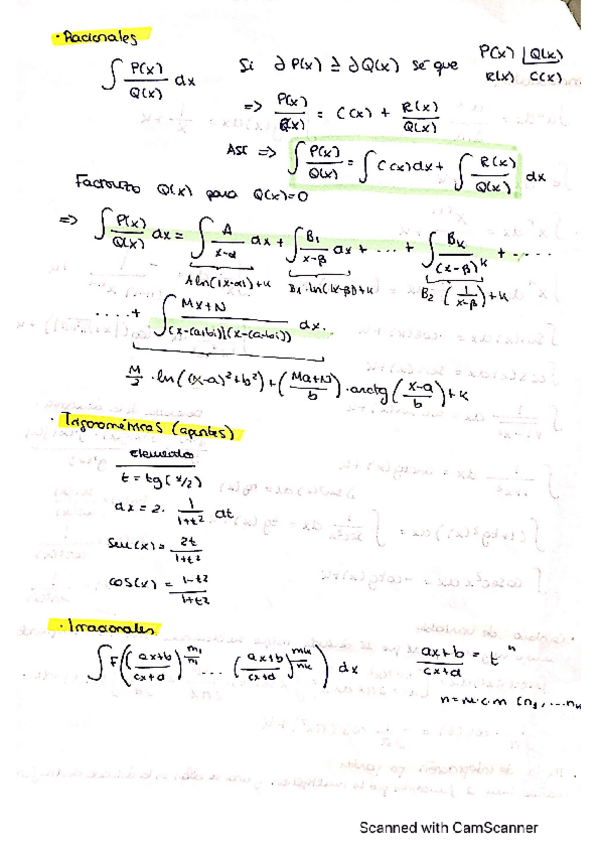 · Racionales
∫ P(x)/Q(x) dx   Si ∂P(x) ≥ ∂Q(x) sé que   P(x) | Q(x)
R(x) C(x)
=> P(x)/Q(x) = C(x) + R(x)/Q(x)
ASÍ => ∫ P(x)/Q(x) = ∫ C(x)dx + ∫ R(x)/Q(x) dx
Factorizo Q(x) para Q(x)=0
=> ∫ P(x)/Q(x) dx = ∫ A/(x-α) dx + ∫ B₁/(x-β) dx + ... + ∫ Bₖ/(x-β)^k + ....
A ln(|x-α|)+k   B₁·ln(|x-β|)+k   B₂ (1/(x-β))+k
....+ ∫ Mx+N/(x-(a+bi))(x-(a-bi)) dx.
M/2 · ln((x-a)²+b²) + (Ma+N/b) · arctg(x-a/b)+k
· Trigonométricas (apuntes)
elementos
t = tg(x/2)
dx = 2· 1/1+t² dt
Sen(x) = 2t/1+t²
cos(x) = 1-t²/1+t²
· Irracionales
∫ F((ax+b/cx+d)^m₁/n₁ ... (ax+b/cx+d)^mk/nk) dx   ax+b/cx+d = t^n
n=m.c.m [n₁,...nk
Scanned with CamScanner